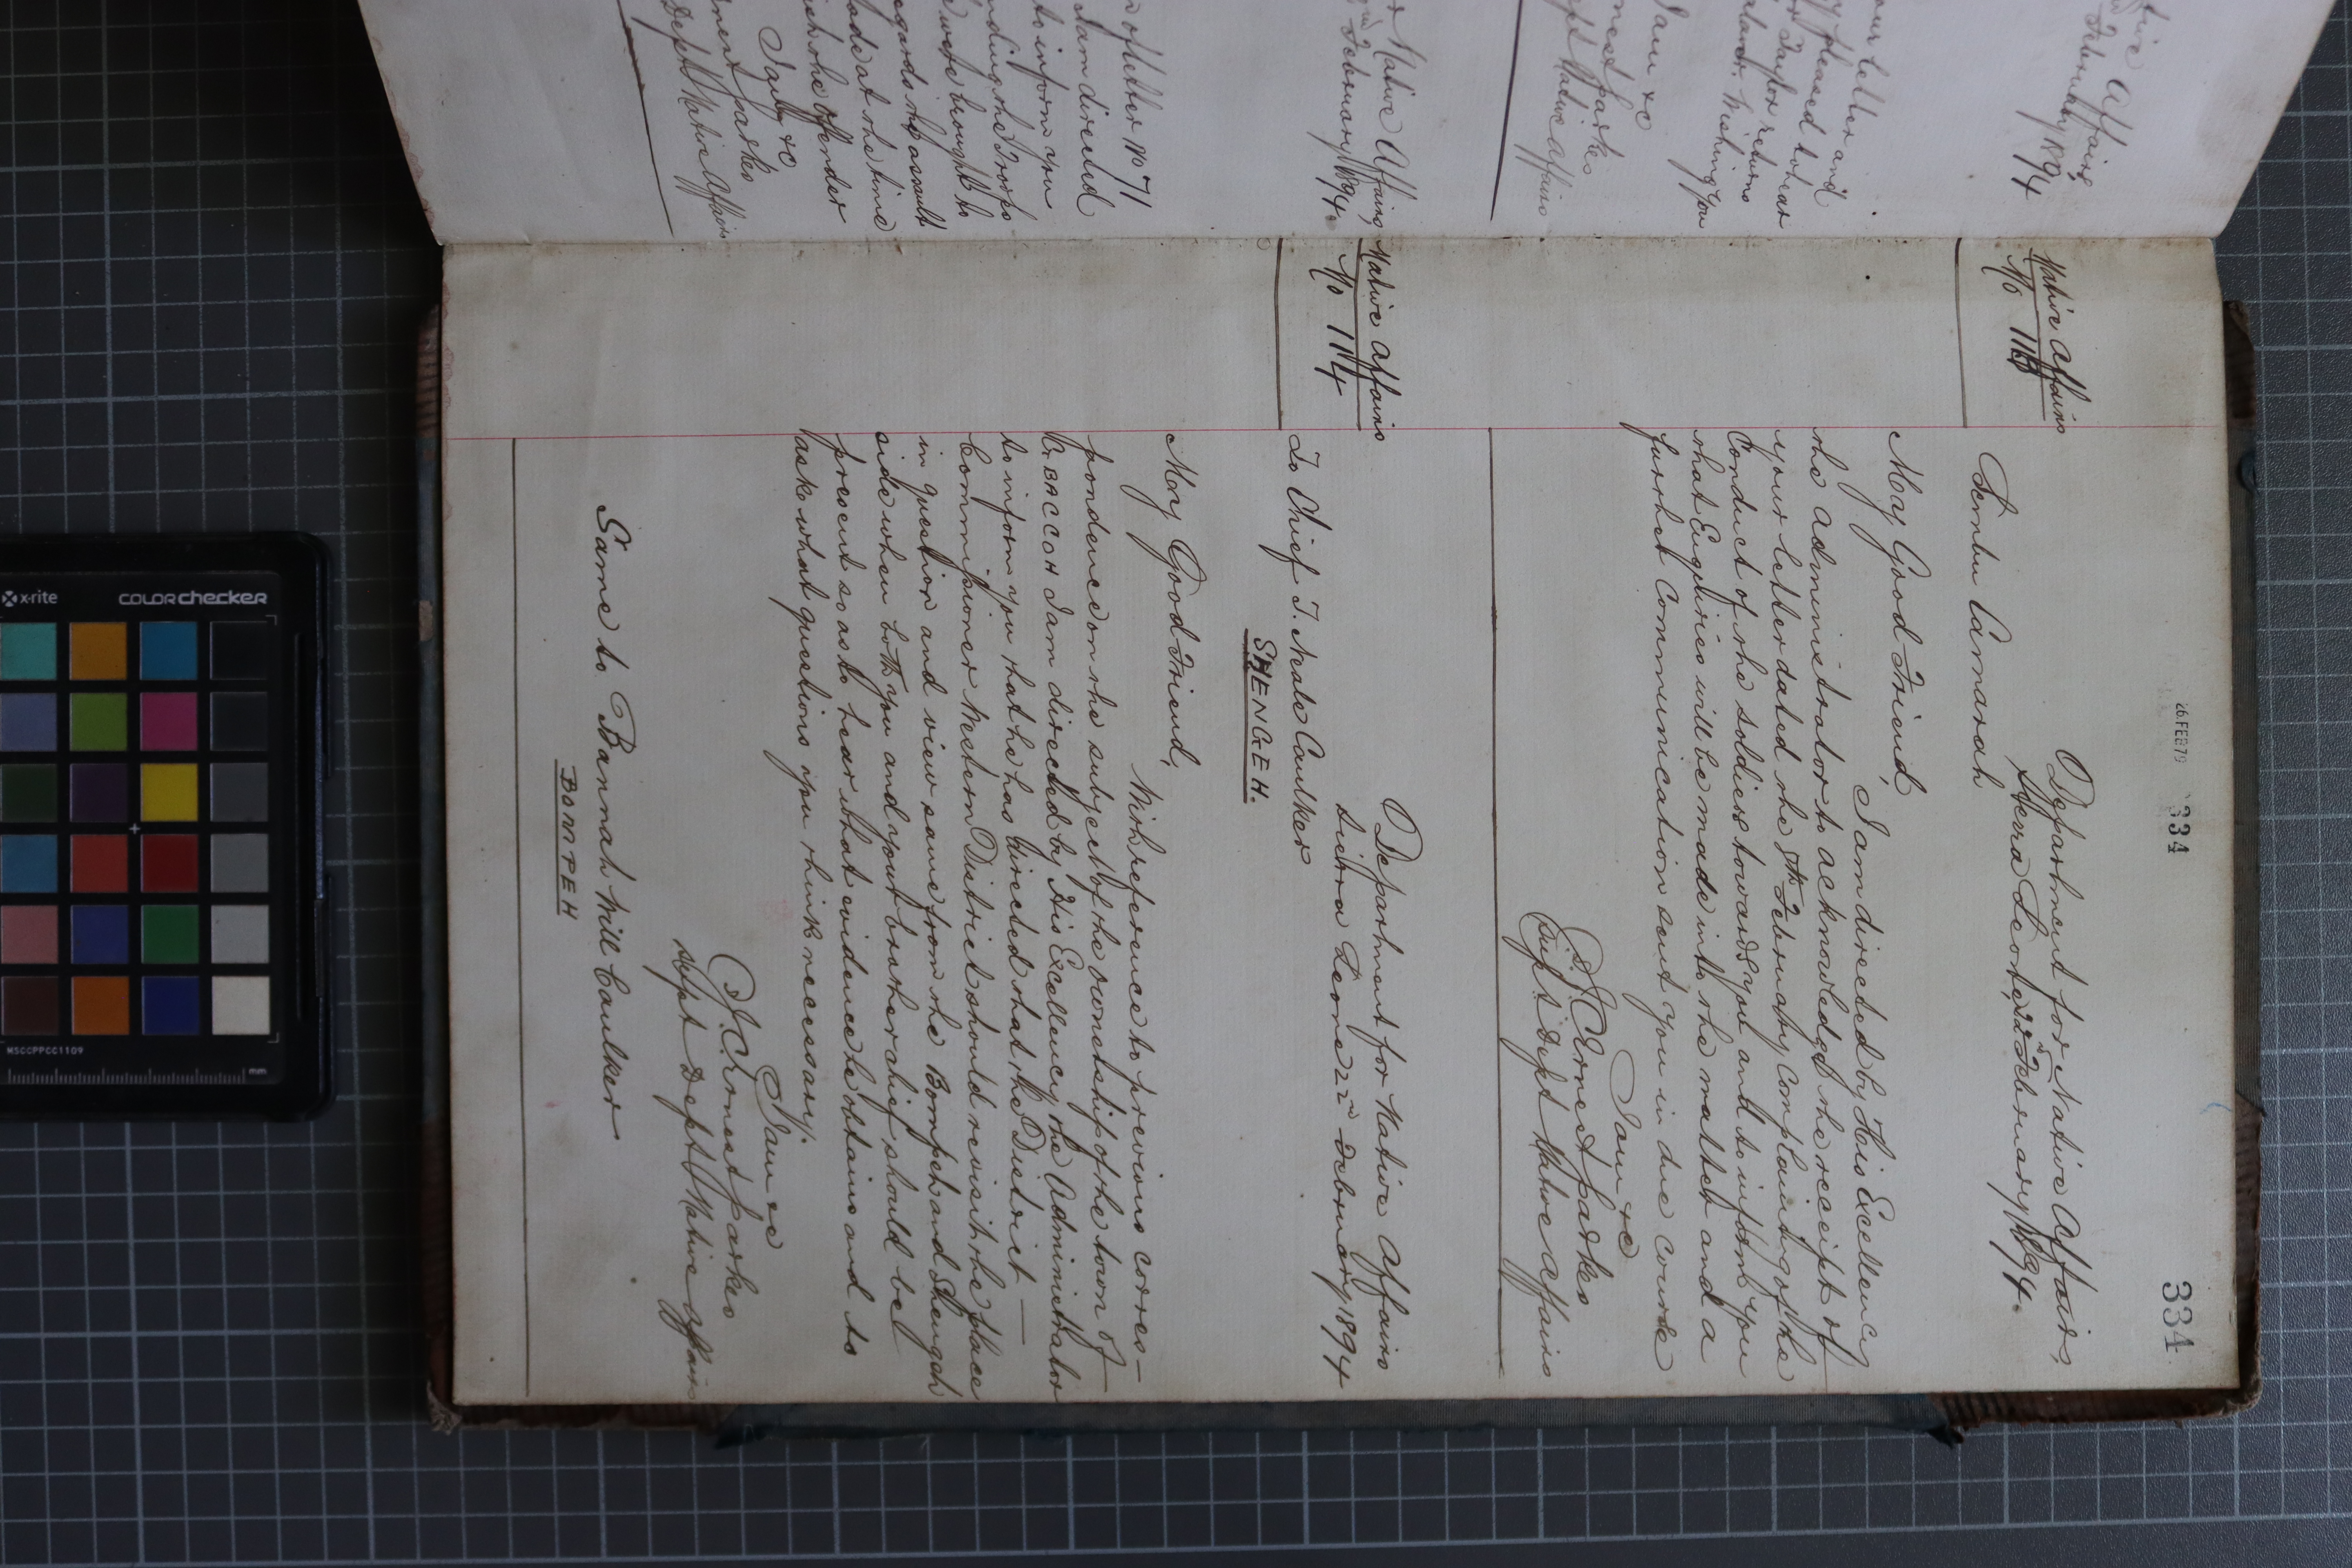 26 FEB 79 334
334
Native Affairs
No 113
Department for Native Affairs,
Sierra Leone, 22nd February 1894.
Sembu Camarah
My Good Friend,
I am directed by His Excellency
the Administrator to acknowledge the receipt of
your letter dated the 5th February complaining of the
Conduct of the soldiers towards you and to inform you
that Enquiries will be made into the matter and a
further Communication sent you in due course
I am &c
J. C. Ernest Parkes
Supt Dept Native Affairs
Native Affairs
No 114
Department for Native Affairs
Sierra Leone 22nd February 1894
To Chief T. Neale Caulker
SHENGEH.
My Good Friend,
With reference to previous corres-
pondence on the subject of the ownership of the town of
I am directed by His Excellency the Administrator
to inform you that he has directed that the District
Commissioner Western District should revisit the place
in question and view same from the Bompeh and Shengeh
side when both you and your brother chief should be
present so as to hear what evidence he obtains and to
ask what questions you think necessary.
I am &c
J. C. Ernest Parkes
Supt Dept Native Affairs
Same to Bannah Will Caulker
BOMPEH
tive Affairs,
February 1894
our letter and
y pleased to hear
r Taylor returns
Wishing you
I am &c
nest Parkes
pt Native Affairs
r Native Affairs
February 1894.
of letter No 71
I am directed
to inform you
nding the Troops
were brought to
egards the assault
ade at the time
ich the offender
I am &c
nest Parkes
Dept Native Affairs
x-rite
colorchecker
MSCCPPCC1109
mm